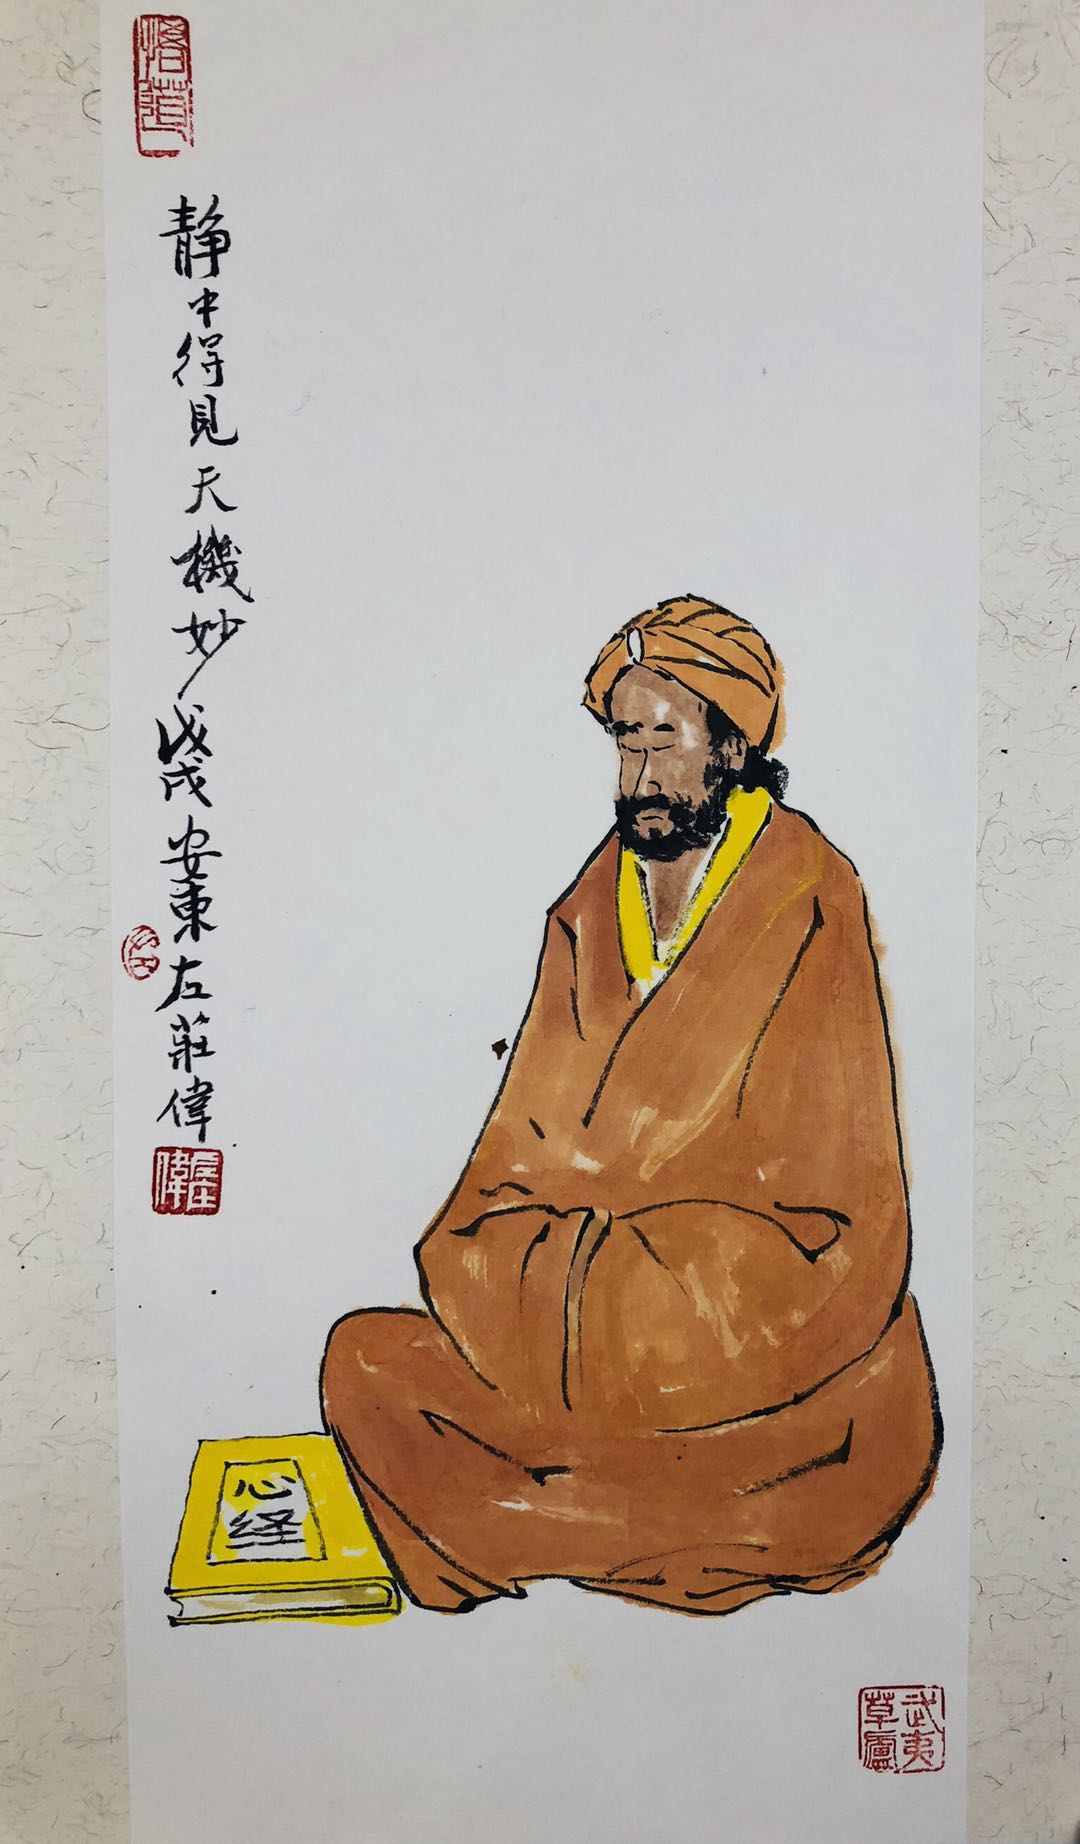 静中得見天機妙戊戌安東左莊偉
心经
武夷草廬